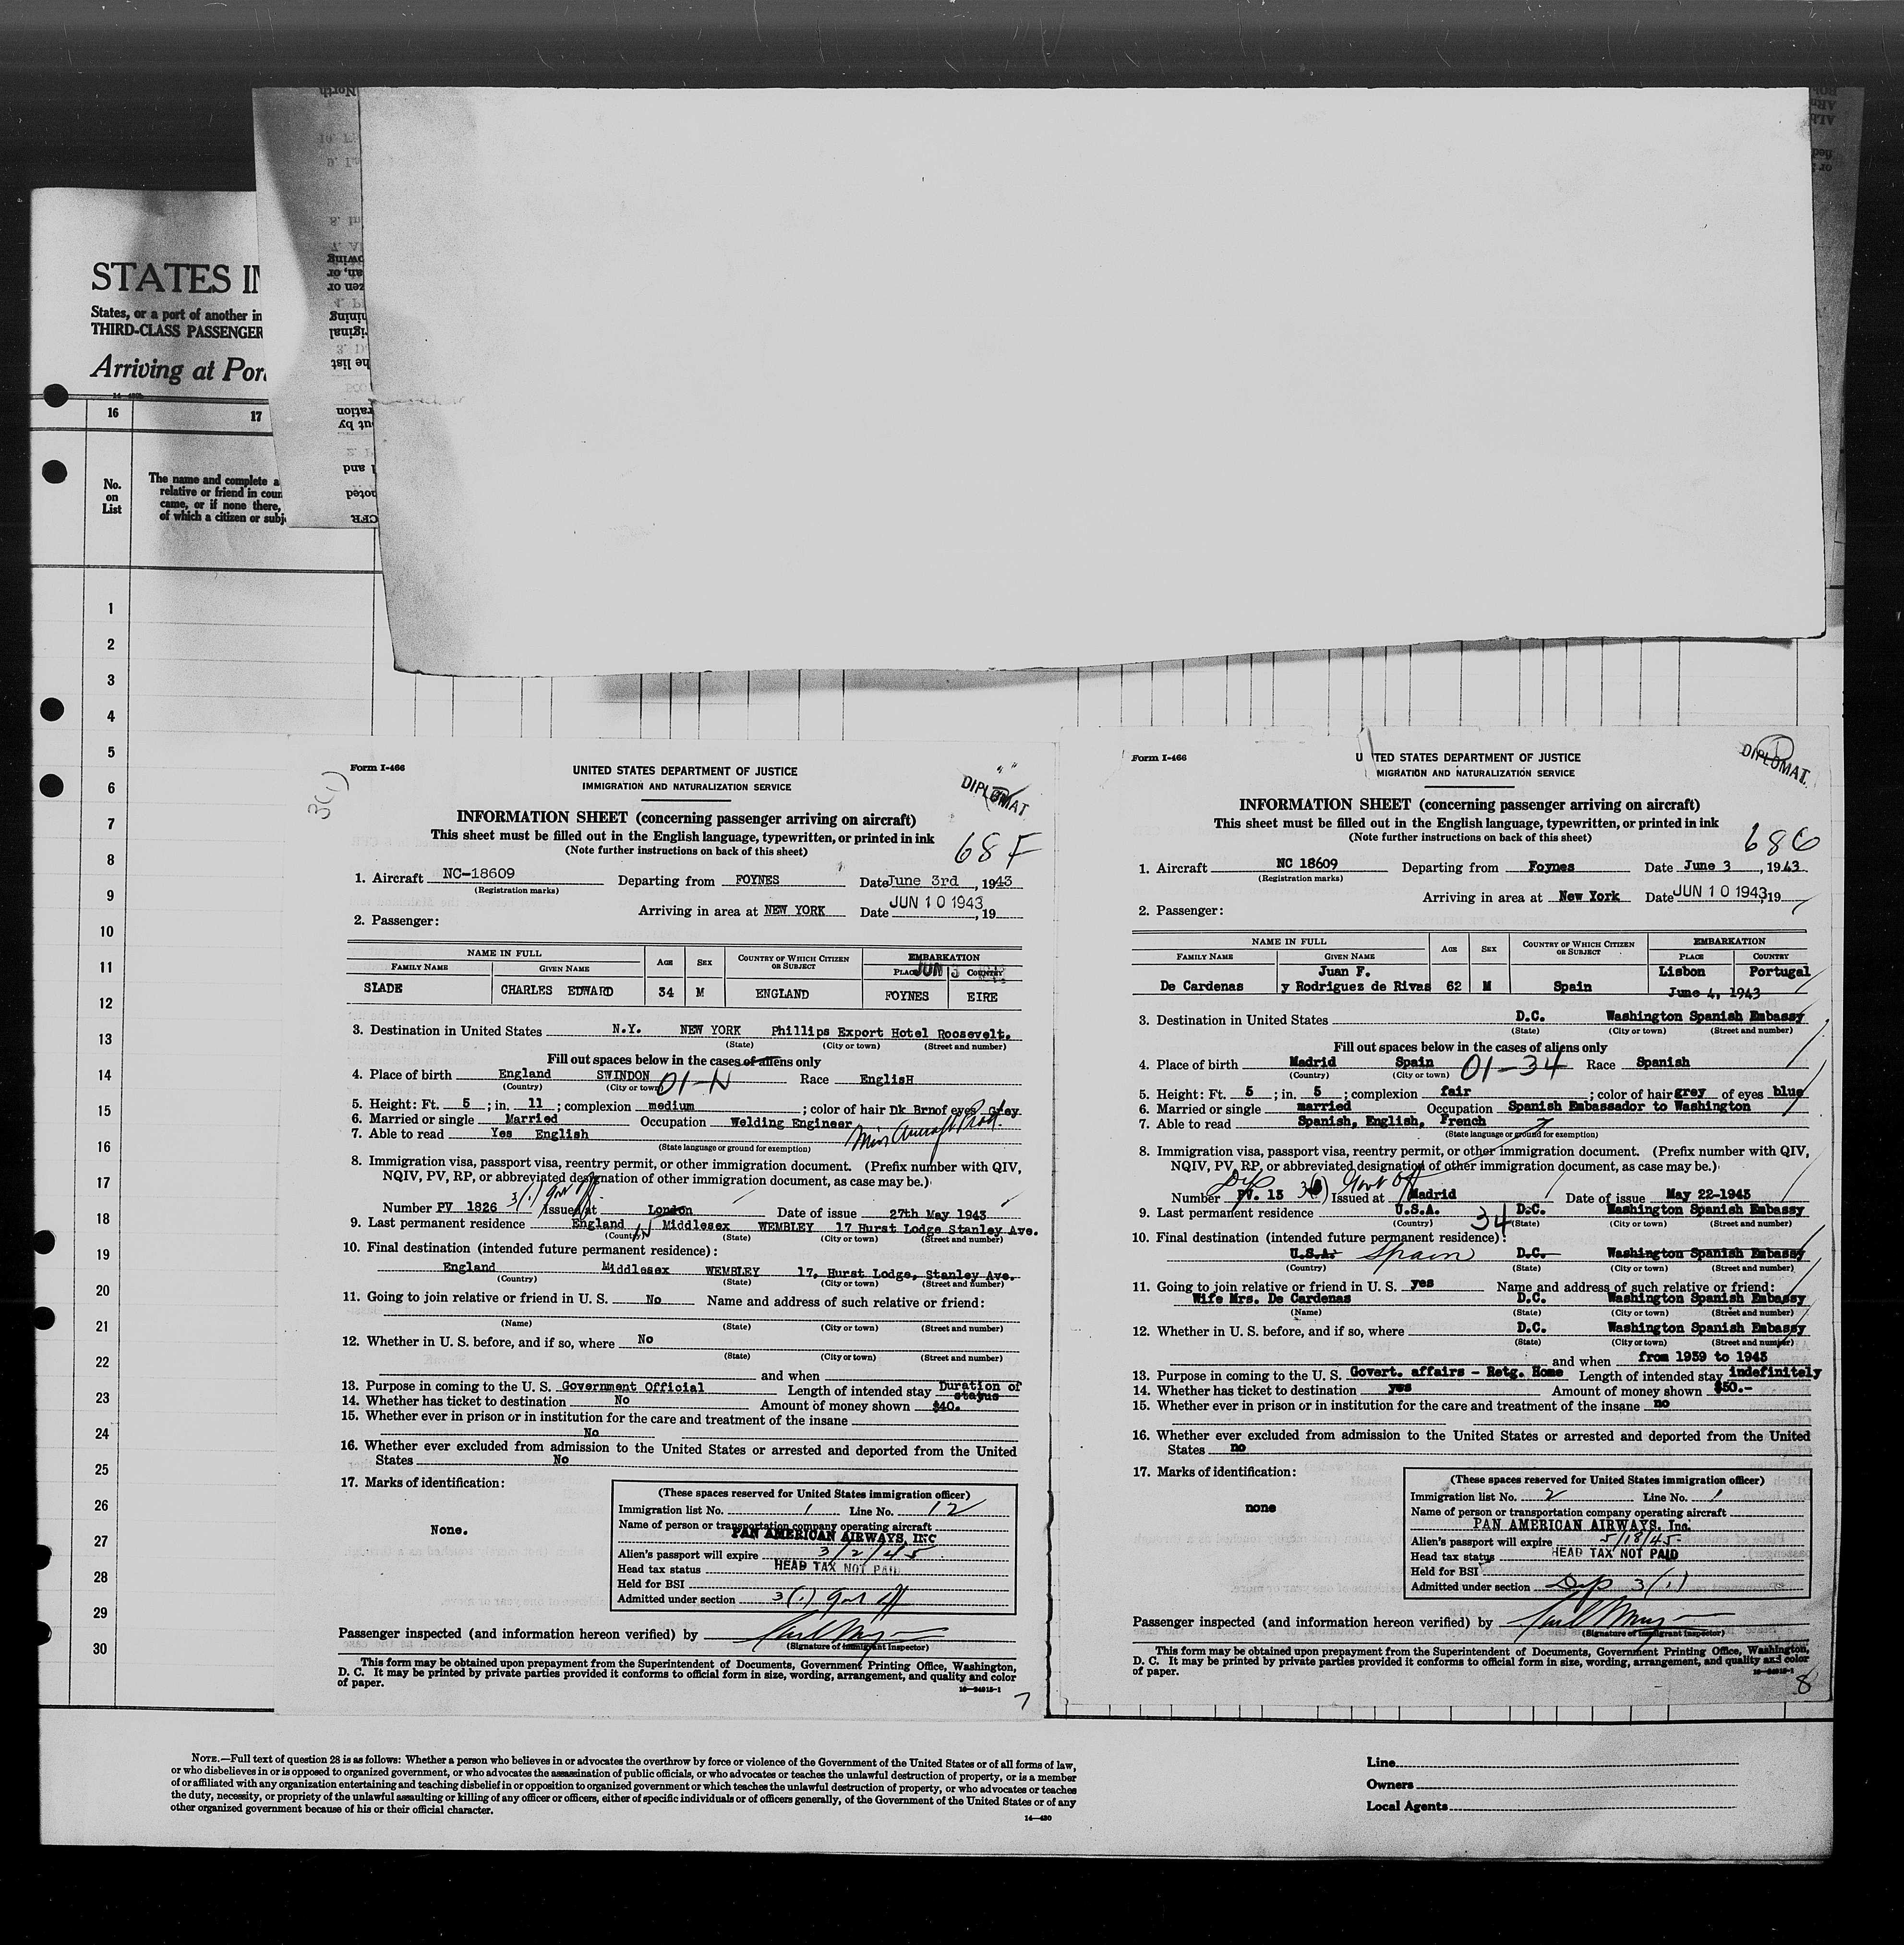 STATES IN
States, or a port of another in
THIRD-CLASS PASSENGER
Arriving at Port
16 17
No.
on
List
The name and complete a
relative or friend in coun
came, or if none there,
of which a citizen or subj
1
2
3
4
5
6
7
8
9
10
11
12
13
14
15
16
17
18
19
20
21
22
23
24
25
26
27
28
29
30
3(1)
Form I-466
UNITED STATES DEPARTMENT OF JUSTICE
IMMIGRATION AND NATURALIZATION SERVICE
DIPLOMAT
INFORMATION SHEET (concerning passenger arriving on aircraft)
This sheet must be filled out in the English language, typewritten, or printed in ink
(Note further instructions on back of this sheet)
68F
1. Aircraft NC-18609 Departing from FOYNES Date June 3rd, 1943
(Registration marks)
Arriving in area at NEW YORK Date JUN 10 1943, 19
2. Passenger:
NAME IN FULL AGE SEX COUNTRY OF WHICH CITIZEN OR SUBJECT EMBARKATION
FAMILY NAME GIVEN NAME PLACE JUN 3 COUNTRY
SLADE CHARLES EDWARD 34 M ENGLAND FOYNES EIRE
3. Destination in United States N.Y. NEW YORK Phillips Export Hotel Roosevelt.
(State) (City or town) (Street and number)
Fill out spaces below in the cases of aliens only
4. Place of birth England SWINDON 01-N Race EnglisH
(Country) (City or town)
5. Height: Ft. 5; in. 11; complexion medium; color of hair Dk Brn of eyes Grey
6. Married or single Married Occupation Welding Engineer Min Aircraft Prod.
7. Able to read Yes English
(State language or ground for exemption)
8. Immigration visa, passport visa, reentry permit, or other immigration document. (Prefix number with QIV,
NQIV, PV, RP, or abbreviated designation of other immigration document, as case may be.)
3(1) Gov Off
Number PV 1826 Issued at London Date of issue 27th May 1943
9. Last permanent residence England Middlesex WEMBLEY 17 Hurst Lodge Stanley Ave.
(Country) N (State) (City or town) (Street and number)
10. Final destination (intended future permanent residence):
England Middlesex WEMBLEY 17, Hurst Lodge, Stanley Ave.
(Country) (State) (City or town) (Street and number)
11. Going to join relative or friend in U. S. No Name and address of such relative or friend:
(Name) (State) (City or town) (Street and number)
12. Whether in U. S. before, and if so, where No
(State) (City or town) (Street and number)
and when
13. Purpose in coming to the U. S. Government Official Length of intended stay Duration of status
14. Whether has ticket to destination No Amount of money shown $40.
15. Whether ever in prison or in institution for the care and treatment of the insane
No
16. Whether ever excluded from admission to the United States or arrested and deported from the United
States No
17. Marks of identification:
None.
(These spaces reserved for United States immigration officer)
Immigration list No. 1 Line No. 12
Name of person or transportation company operating aircraft
PAN AMERICAN AIRWAYS, INC
Alien's passport will expire 3/2/45
Head tax status HEAD TAX NOT PAID
Held for BSI
Admitted under section 3(1) Gov Off
Passenger inspected (and information hereon verified) by
(Signature of Immigrant Inspector)
This form may be obtained upon prepayment from the Superintendent of Documents, Government Printing Office, Washington,
D. C. It may be printed by private parties provided it conforms to official form in size, wording, arrangement, and quality and color
of paper.
16-24915-1
7
Form I-466
U TED STATES DEPARTMENT OF JUSTICE
MIGRATION AND NATURALIZATION SERVICE
DIPLOMAT.
INFORMATION SHEET (concerning passenger arriving on aircraft)
This sheet must be filled out in the English language, typewritten, or printed in ink
(Note further instructions on back of this sheet)
1. Aircraft NC 18609 Departing from Foynes Date June 3, 1943
(Registration marks)
Arriving in area at New York Date JUN 10 1943, 19
2. Passenger:
NAME IN FULL AGE SEX COUNTRY OF WHICH CITIZEN OR SUBJECT EMBARKATION
FAMILY NAME GIVEN NAME PLACE COUNTRY
Juan F. Lisbon Portugal
De Cardenas y Rodriguez de Rivas 62 M Spain June 4, 1943
3. Destination in United States D.C. Washington Spanish Embassy
(State) (City or town) (Street and number)
Fill out spaces below in the cases of aliens only
4. Place of birth Madrid Spain 01-34 Race Spanish
(Country) (City or town)
5. Height: Ft. 5; in. 5; complexion fair; color of hair grey of eyes blue
6. Married or single married Occupation Spanish Embassador to Washington
7. Able to read Spanish, English, French
(State language or ground for exemption)
8. Immigration visa, passport visa, reentry permit, or other immigration document. (Prefix number with QIV,
NQIV, PV, RP, or abbreviated designation of other immigration document, as case may be.)
Dip Govt Off
Number PV. 13 Issued at Madrid Date of issue May 22-1943
9. Last permanent residence U.S.A. D.C. Washington Spanish Embassy
(Country) 34 (State) (City or town) (Street and number)
10. Final destination (intended future permanent residence):
U.S.A. Spain D.C. Washington Spanish Embassy
(Country) (State) (City or town) (Street and number)
11. Going to join relative or friend in U. S. yes Name and address of such relative or friend:
Wife Mrs. De Cardenas D.C. Washington Spanish Embassy
(Name) (State) (City or town) (Street and number)
12. Whether in U. S. before, and if so, where D.C. Washington Spanish Embassy
(State) (City or town) (Street and number)
and when from 1939 to 1943
13. Purpose in coming to the U. S. Govert. affairs - Retg. Home Length of intended stay indefinitely
14. Whether has ticket to destination yes Amount of money shown $50.-
15. Whether ever in prison or in institution for the care and treatment of the insane no
16. Whether ever excluded from admission to the United States or arrested and deported from the United
States no
17. Marks of identification:
none
(These spaces reserved for United States immigration officer)
Immigration list No. 2 Line No. 1
Name of person or transportation company operating aircraft
PAN AMERICAN AIRWAYS, Inc.
Alien's passport will expire 5/18/45
Head tax status HEAD TAX NOT PAID
Held for BSI
Admitted under section Dip 3(1)
Passenger inspected (and information hereon verified) by
(Signature of Immigrant Inspector)
This form may be obtained upon prepayment from the Superintendent of Documents, Government Printing Office, Washington,
D. C. It may be printed by private parties provided it conforms to official form in size, wording, arrangement, and quality and color
of paper.
16-24915-1
8
NOTE.—Full text of question 28 is as follows: Whether a person who believes in or advocates the overthrow by force or violence of the Government of the United States or of all forms of law,
or who disbelieves in or is opposed to organized government, or who advocates the assassination of public officials, or who advocates or teaches the unlawful destruction of property, or is a member
of or affiliated with any organization entertaining and teaching disbelief in or opposition to organized government or which teaches the unlawful destruction of property, or who advocates or teaches
the duty, necessity, or propriety of the unlawful assaulting or killing of any officer or officers, either of specific individuals or of officers generally, of the Government of the United States or of any
other organized government because of his or their official character.
14-430
Line
Owners
Local Agents